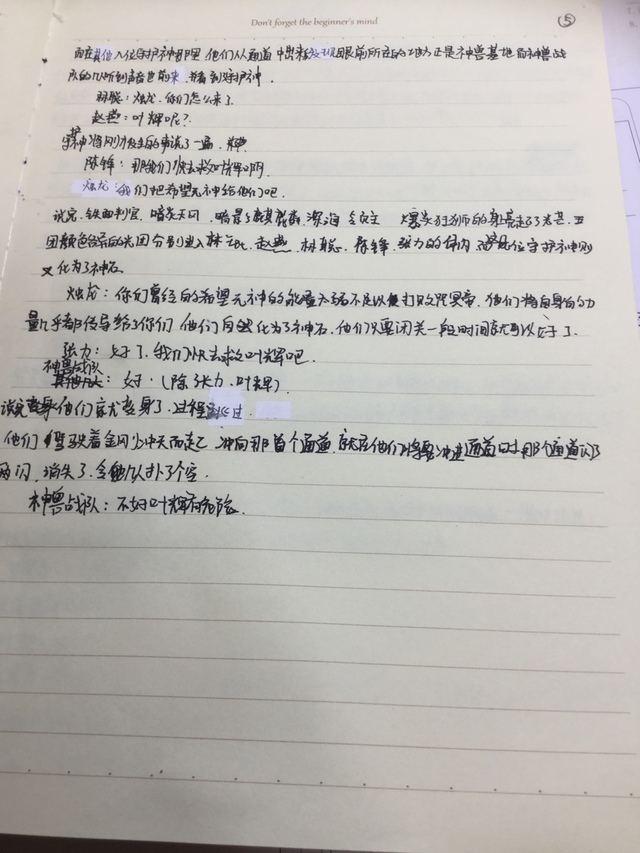 Don't forget the beginner's mind
5
而在其他几位守护神那里 他们从通道中出来发现眼前所在的地方正是神兽基地 而神兽战
队的队听到声音也前来 并看到守护神
林聪：烛龙，你们怎么来了
赵燕：叶辉呢？
守护神将刚才发生的事说了一遍
陈锋：那我们快去救叶辉啊
烛龙：我们把希望元神给他们吧
说完 铁面判官 暗炎天 深海 的身上 走了 光芒 五
团颜色各异的光团分别进入林 赵燕 林聪 陈锋 张力的体内 这几位守护神则
又化为了神石
烛龙：你们曾经的希望元神的能量太弱不足以打败 冥帝 他们将自身的力
量几乎都传导给了你们 他们自然化为了神石 他们只要闭关一段时间就可以了
张力：好了 我们快去救叶辉吧
神兽战队
：好 (除张力、叶辉)
说完 他们就变身了 过程跳过
他们 着金冈 冲天而起 冲向那首个通道 就在他们将要冲进通道时 那个通道闪了
两闪 消失了 令他们扑了个空
神兽战队：不好叶辉有危险